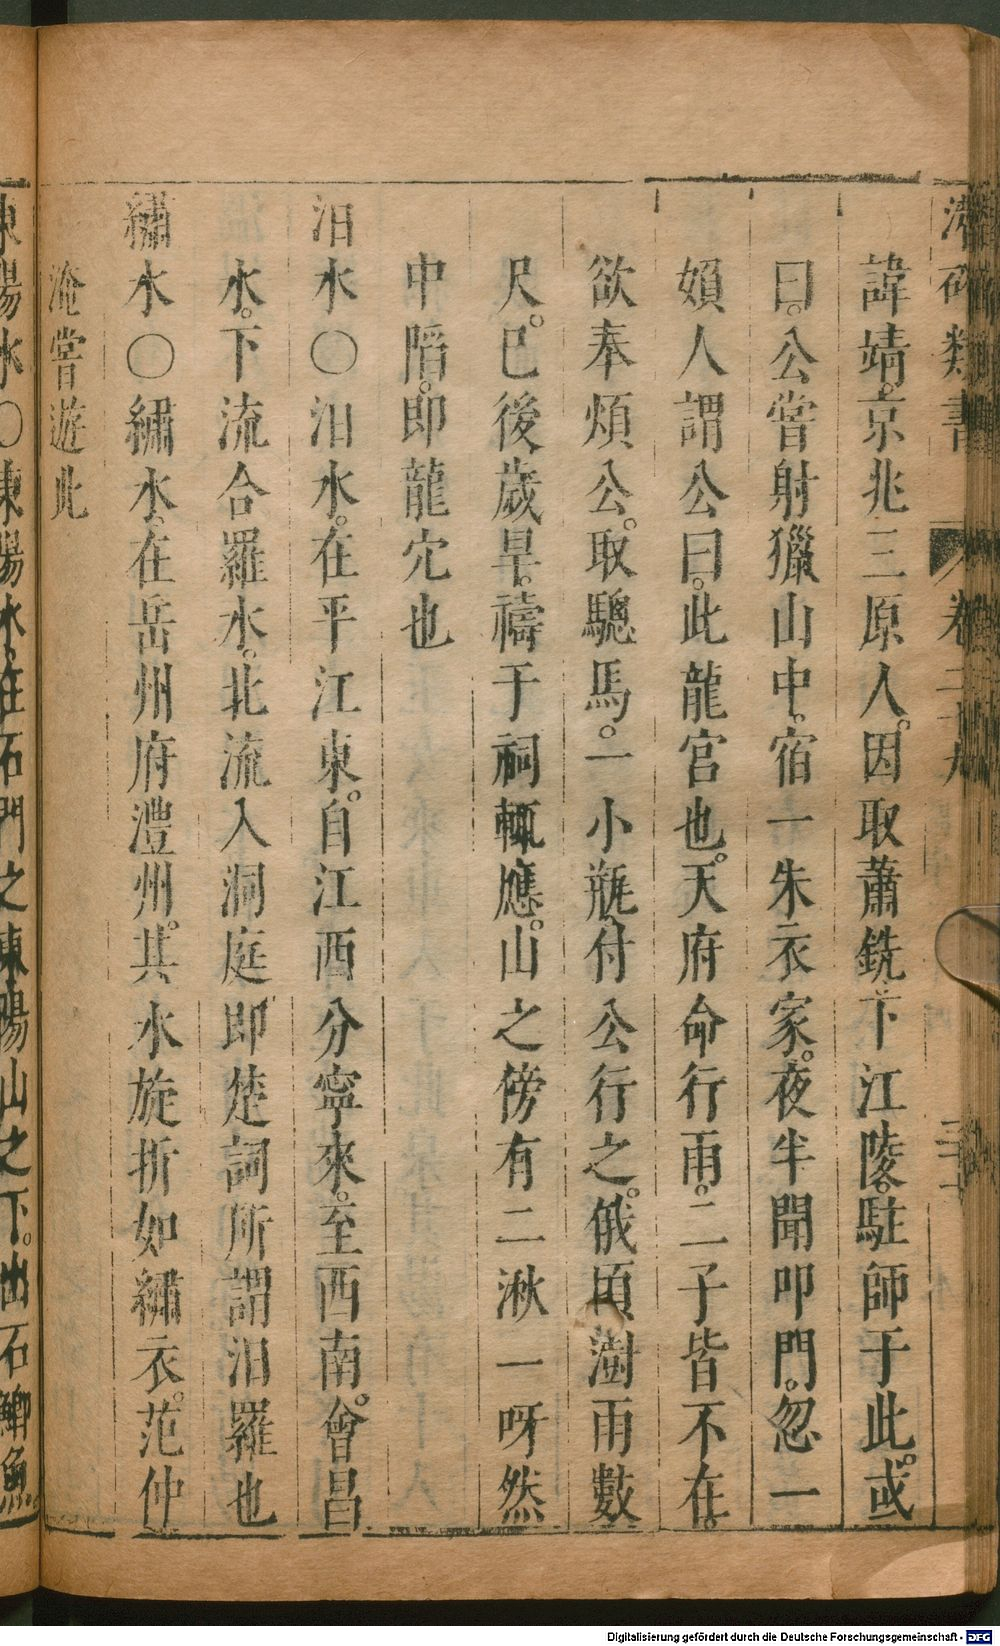 類書 卷二十九
諱靖。京兆三原人。因取蕭銑下江陵。駐師于此。或
曰。公嘗射獵山中。宿一朱衣家。夜半聞叩門。忽一
媍人謂公曰。此龍宮也。天府命行雨。二子皆不在。
欲奉煩公。取驄馬。一小瓶付公行之。俄頃澍雨數
尺。已後歲旱。禱于祠輒應。山之傍有二湫一呀然
中陷。即龍穴也
汨水○汨水。在平江東。自江西分寧來。至西南。會昌
水。下流合羅水。北流入洞庭即楚詞所謂汨羅也
繡水○繡水。在岳州府澧州。其水旋折如繡衣。范仲
淹嘗遊此
東陽水○東陽水。在石門之東陽山之下。出石鯽魚。
Digitalisierung gefördert durch die Deutsche Forschungsgemeinschaft - DFG